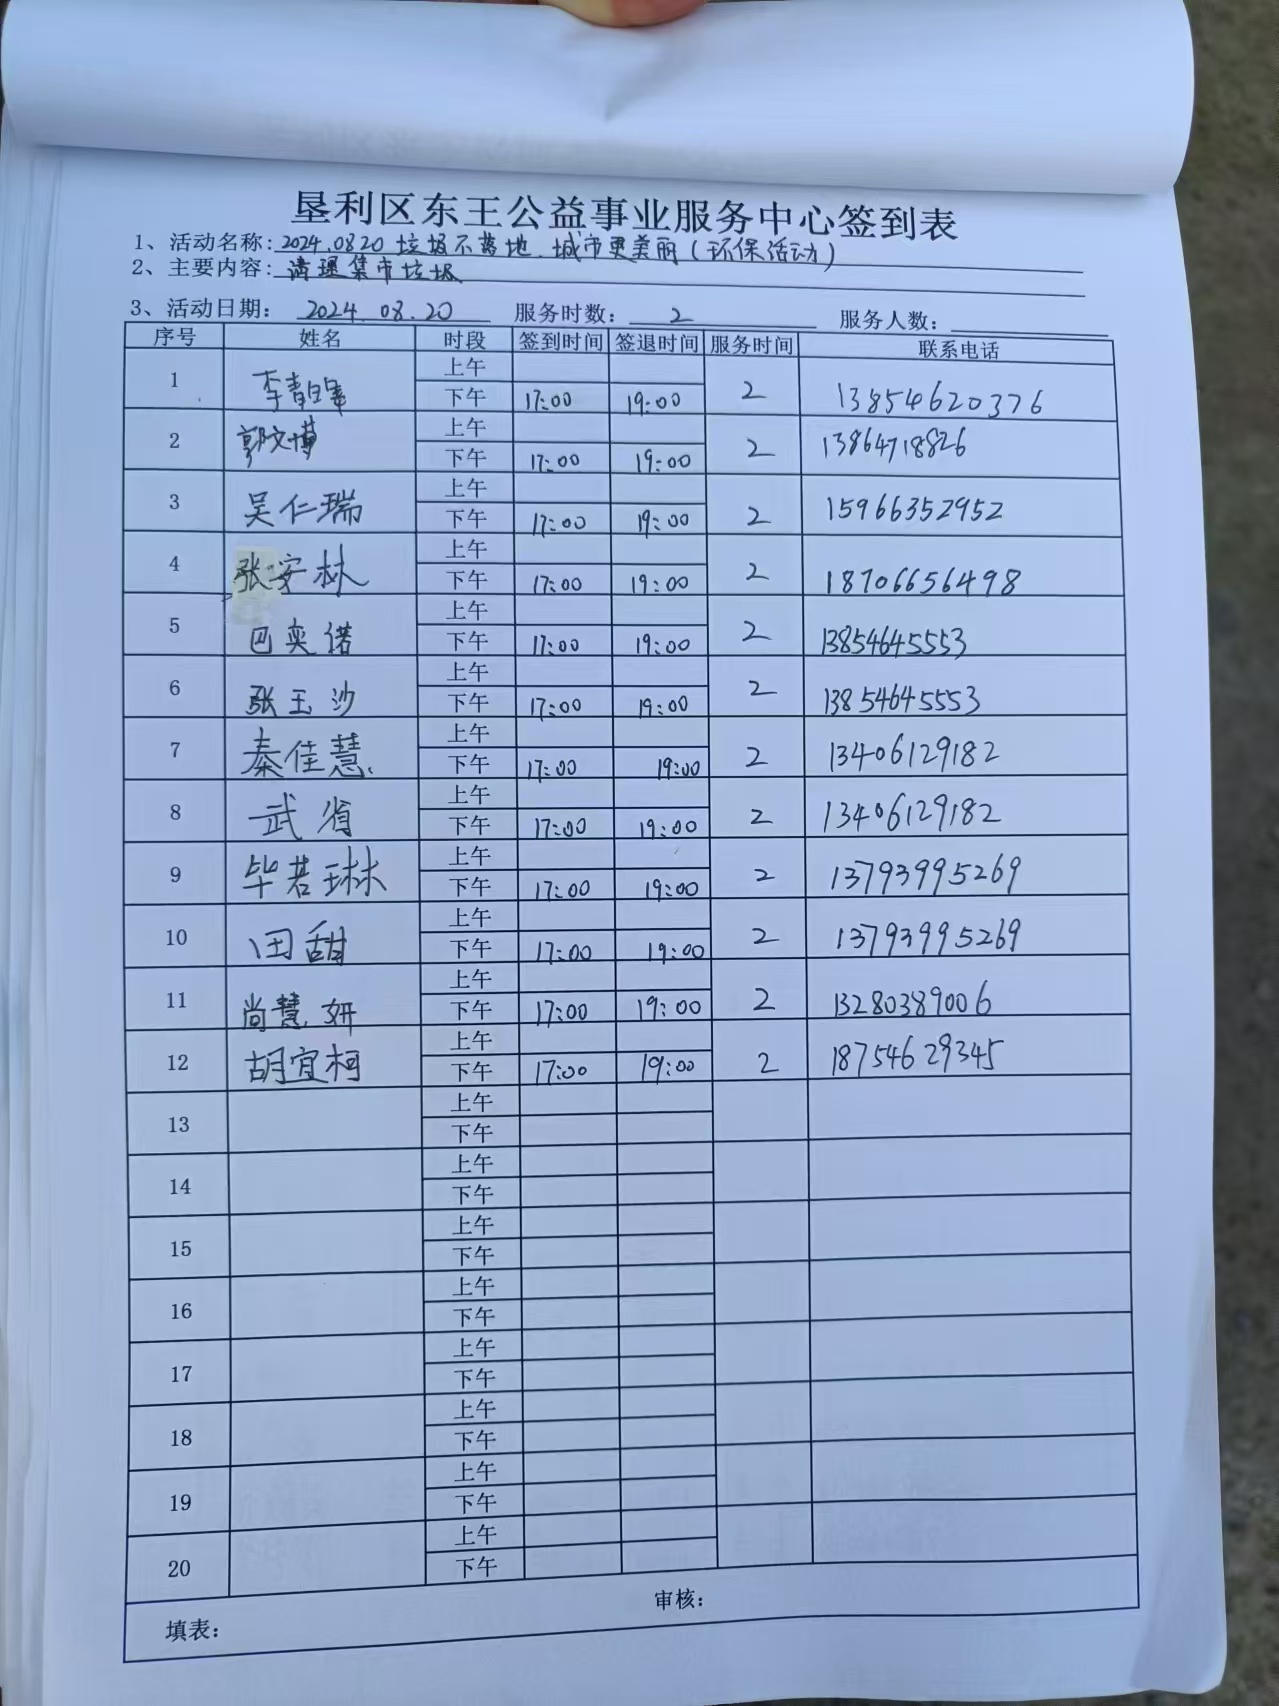 垦利区东王公益事业服务中心签到表
1、活动名称: 2024.0820 垃圾不落地 城市更美丽(环保活动)
2、主要内容: 清理集市垃圾
3、活动日期: 2024.08.20 服务时数: 2 服务人数:
序号 姓名 时段 签到时间 签退时间 服务时间 联系电话
上午
1 李青 下午 17:00 19:00 2 13854620376
上午
2 郭文博 下午 17:00 19:00 2 13864718826
上午
3 吴仁瑞 下午 17:00 19:00 2 15966352952
上午
4 张安林 下午 17:00 19:00 2 18706656498
上午
5 巴奕诺 下午 17:00 19:00 2 13854645553
上午
6 张玉沙 下午 17:00 19:00 2 13854645553
上午
7 秦佳慧 下午 17:00 19:00 2 13406129182
上午
8 武省 下午 17:00 19:00 2 13406129182
上午
9 毕若琳 下午 17:00 19:00 2 13793995269
上午
10 田甜 下午 17:00 19:00 2 13793995269
上午
11 尚慧妍 下午 17:00 19:00 2 13280389006
上午
12 胡宜柯 下午 17:00 19:00 2 18754629345
上午
13 下午
上午
14 下午
上午
15 下午
上午
16 下午
上午
17 下午
上午
18 下午
上午
19 下午
上午
20 下午
填表: 审核: